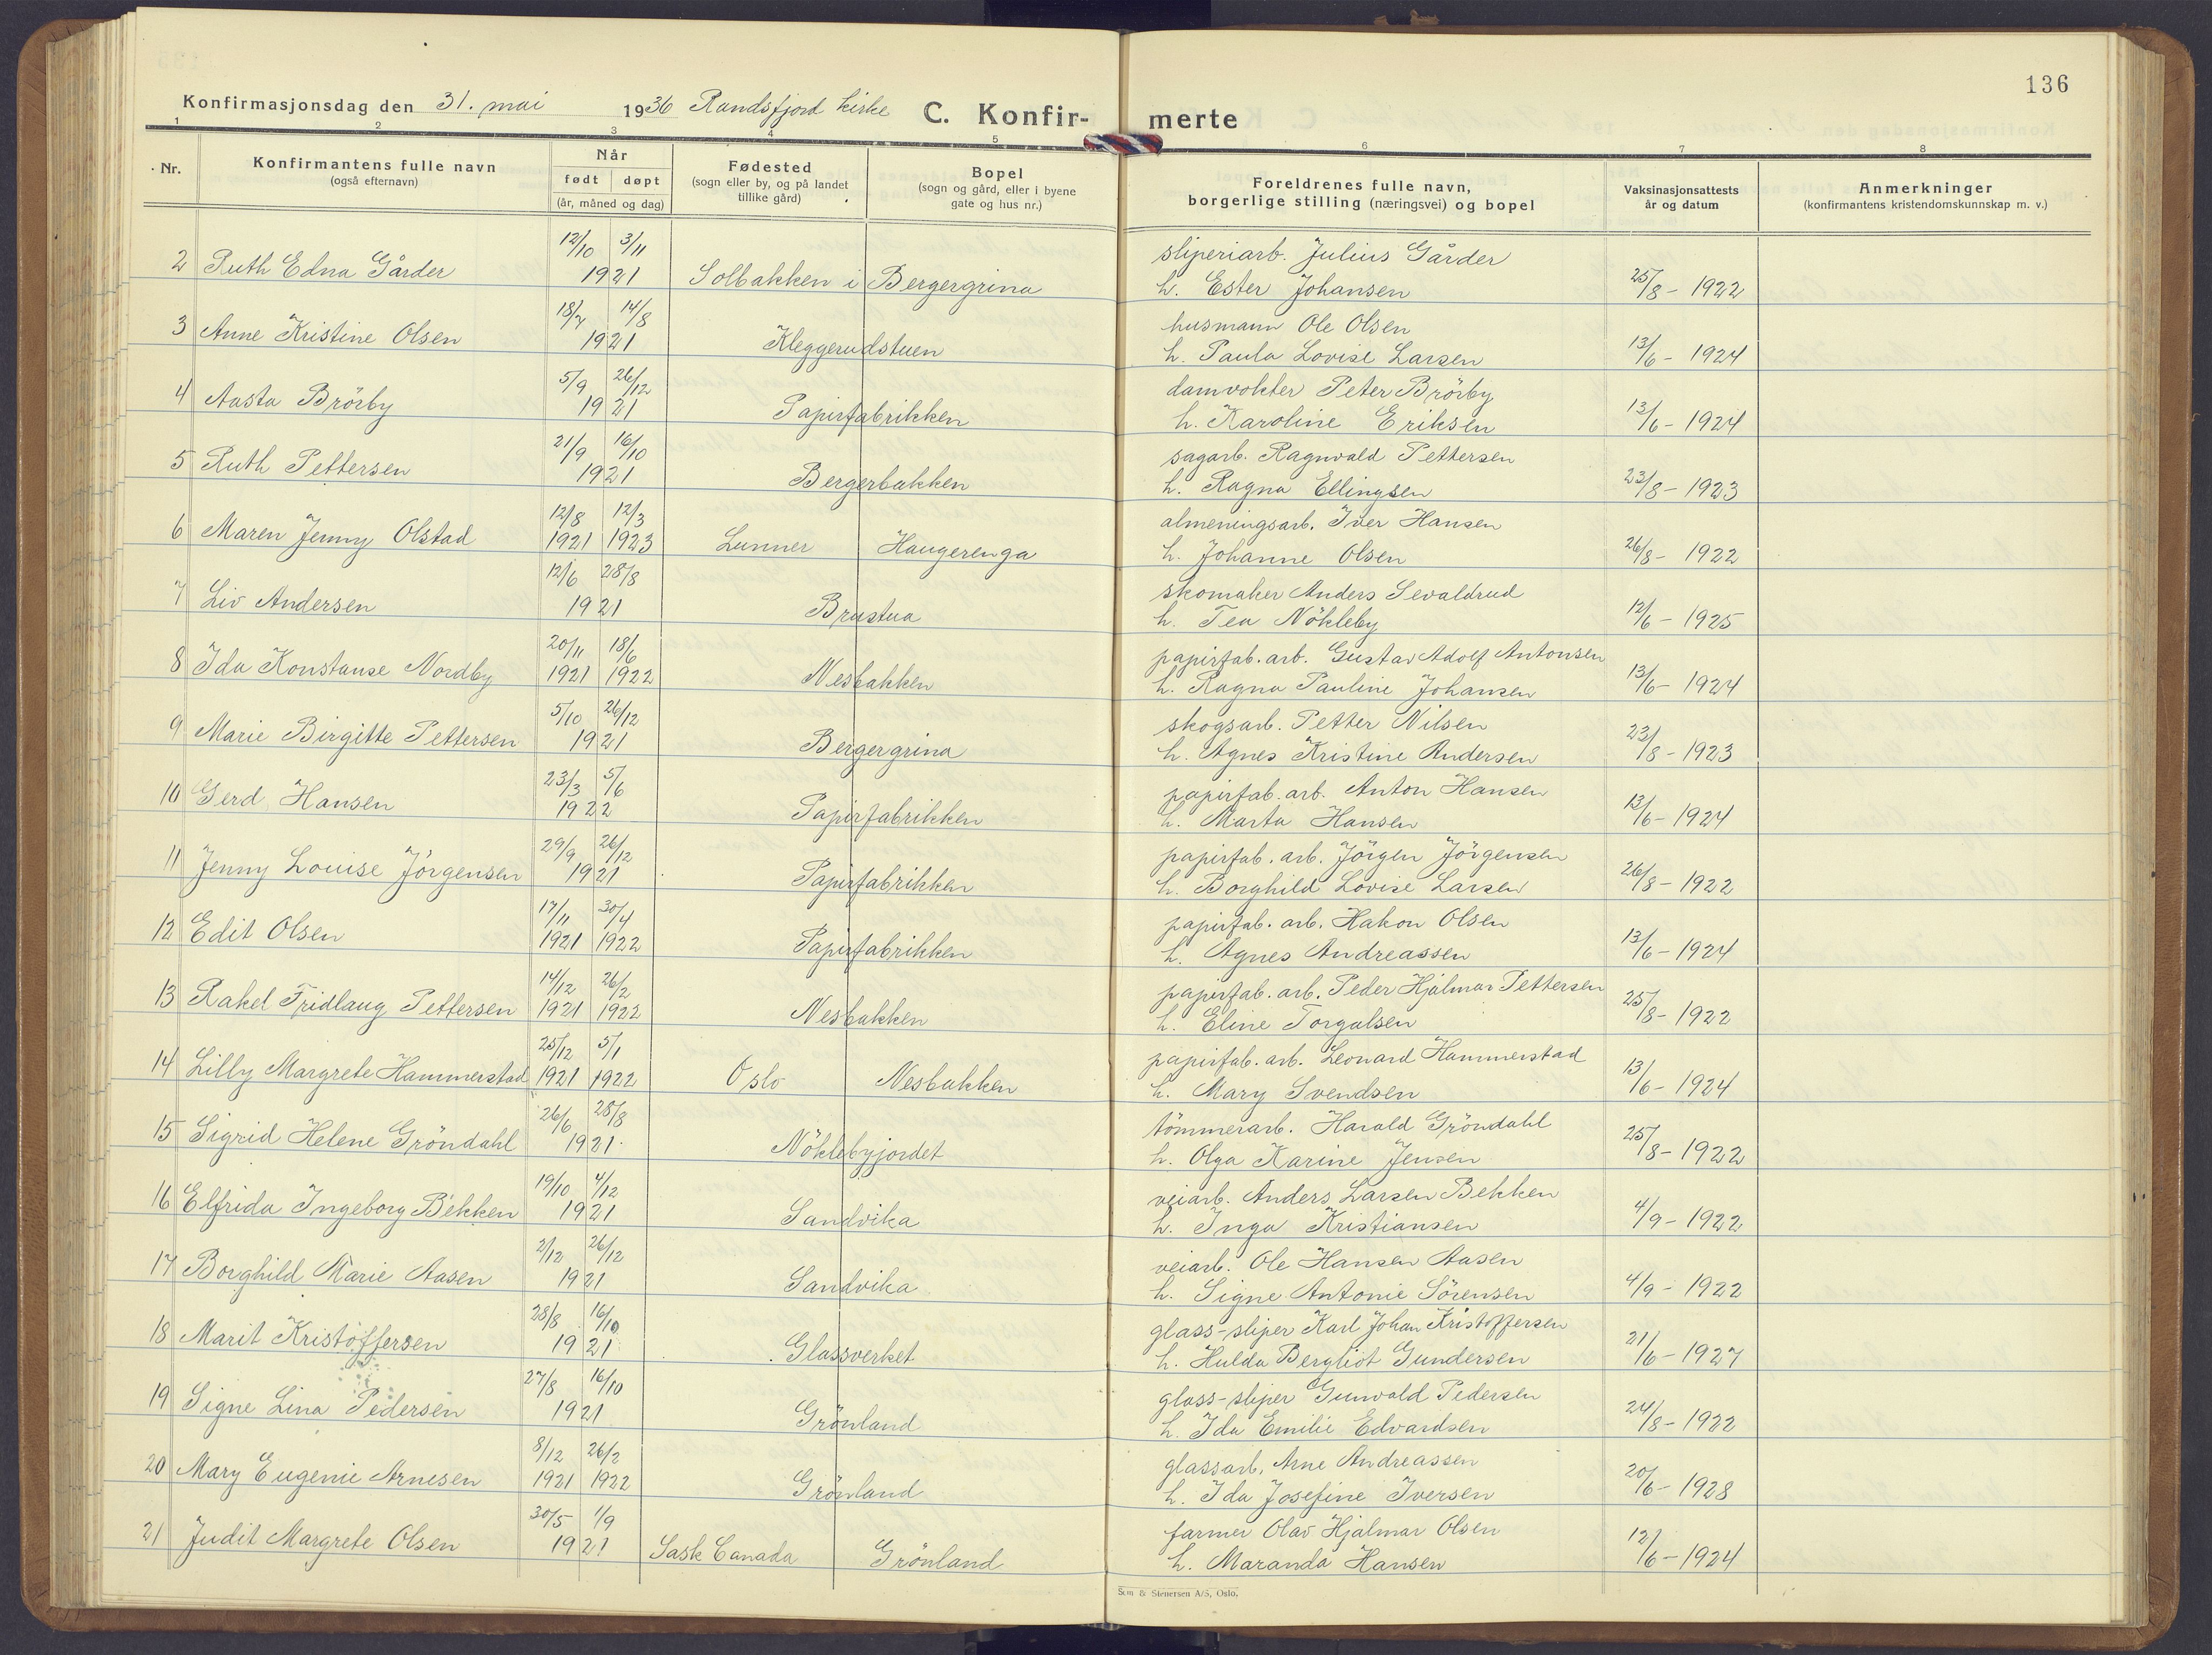 136
Konfirmasjonsdag den 31. mai 1936 Randsfjord kirke C. Konfir- merte
1 2 3 4 5 6 7 8
Nr.
Konfirmantens fulle navn
(også efternavn)
Når
født døpt
(år, måned og dag)
Fødested
(sogn eller by, og på landet
tillike gård)
Bopel
(sogn og gård, eller i byene
gate og hus nr.)
Foreldrenes fulle navn,
borgerlige stilling (næringsvei) og bopel
Vaksinasjonsattests
år og datum
Anmerkninger
(konfirmantens kristendomskunnskap m. v.)
12/10 3/11 sliperiarb. Julius Gårder
2 Ruth Edna Gårder 1921 Solbakken i Bergergrina h. Ester Johansen 25/8 - 1922
18/7 14/8 husmann Ole Olsen
3 Anne Kristine Olsen 1921 Kleggerudstuen h. Paula Lovise Larsen 13/6 - 1924
5/9 26/12 damvokter Peter Brörby
4 Aasta Brörby 1921 Papirfabrikken h. Karoline Eriksen 13/6 - 1924
21/9 16/10 sagarb. Ragnvald Pettersen
5 Ruth Pettersen 1921 Bergerbakken h. Ragna Ellingsen 23/8 - 1923
12/8 12/3 almeningsarb. Iver Hansen
6 Maren Jenny Olstad 1921 1923 Lunner Haugerenga h. Johanne Olsen 26/8 - 1922
12/6 28/8 skomaker Anders Sevaldrud
7 Liv Andersen 1921 Brustua h. Tea Nökleby 12/6 - 1925
20/11 18/6 papirfab. arb. Gustav Adolf Antonsen
8 Ida Konstanse Nordby 1921 1922 Nesbakken h. Ragna Pauline Johansen 13/6 - 1924
5/10 26/12 skogsarb. Petter Nilsen
9 Marie Birgitte Pettersen 1921 Bergergrina h. Agnes Kristine Andersen 23/8 - 1923
23/3 5/6 papirfab. arb. Anton Hansen
10 Gerd Hansen 1922 Papirfabrikken h. Marta Hansen 13/6 - 1924
29/9 26/12 papirfab. arb. Jörgen Jörgensen
11 Jenny Louise Jörgensen 1921 Papirfabrikken h. Borghild Lovise Larsen 26/8 - 1922
17/11 30/4 papirfab. arb. Hakon Olsen
12 Edit Olsen 1921 1922 Papirfabrikken h. Agnes Andreassen 13/6 - 1924
14/12 26/2 papirfab. arb. Peder Hjalmar Pettersen
13 Rakel Fridlaug Pettersen 1921 1922 Nesbakken h. Eline Torgalsen 25/8 - 1922
25/12 5/1 papirfab. arb. Leonard Hammerstad
14 Lilly Margrete Hammerstad 1921 1922 Oslo Nesbakken h. Mary Svendsen 13/6 - 1924
26/6 28/8 tömmerarb. Harald Gröndahl
15 Sigrid Helene Gröndahl 1921 Nöklebyjordet h. Olga Karine Jensen 25/8 - 1922
19/10 4/12 veiarb. Anders Larsen Bekken
16 Elfrida Ingeborg Bekken 1921 Sandvika h. Inga Kristiansen 4/9 - 1922
2/12 26/12 veiarb. Ole Hansen Aasen
17 Borghild Marie Aasen 1921 Sandvika h. Signe Antonie Sörensen 4/9 - 1922
28/8 16/10 glass-sliper Karl Johan Kristoffersen
18 Marit Kristoffersen 1921 Glassverket h. Hulda Bergliot Gundersen 21/6 - 1927
27/8 16/10 glass-sliper Gunvald Pedersen
19 Signe Lina Pedersen 1921 Grönland h. Ida Emilie Edvardsen 24/8 - 1922
8/12 26/2 glassarb. Arne Andreassen
20 Mary Eugenie Arnesen 1921 1922 Grönland h. Ida Josefine Iversen 20/6 - 1928
30/5 1/9 farmer Olav Hjalmar Olsen
21 Judit Margrete Olsen 1921 Sask Canada Grönland h. Maranda Hansen 12/6 - 1924
Sem & Stenersen A/S, Oslo.